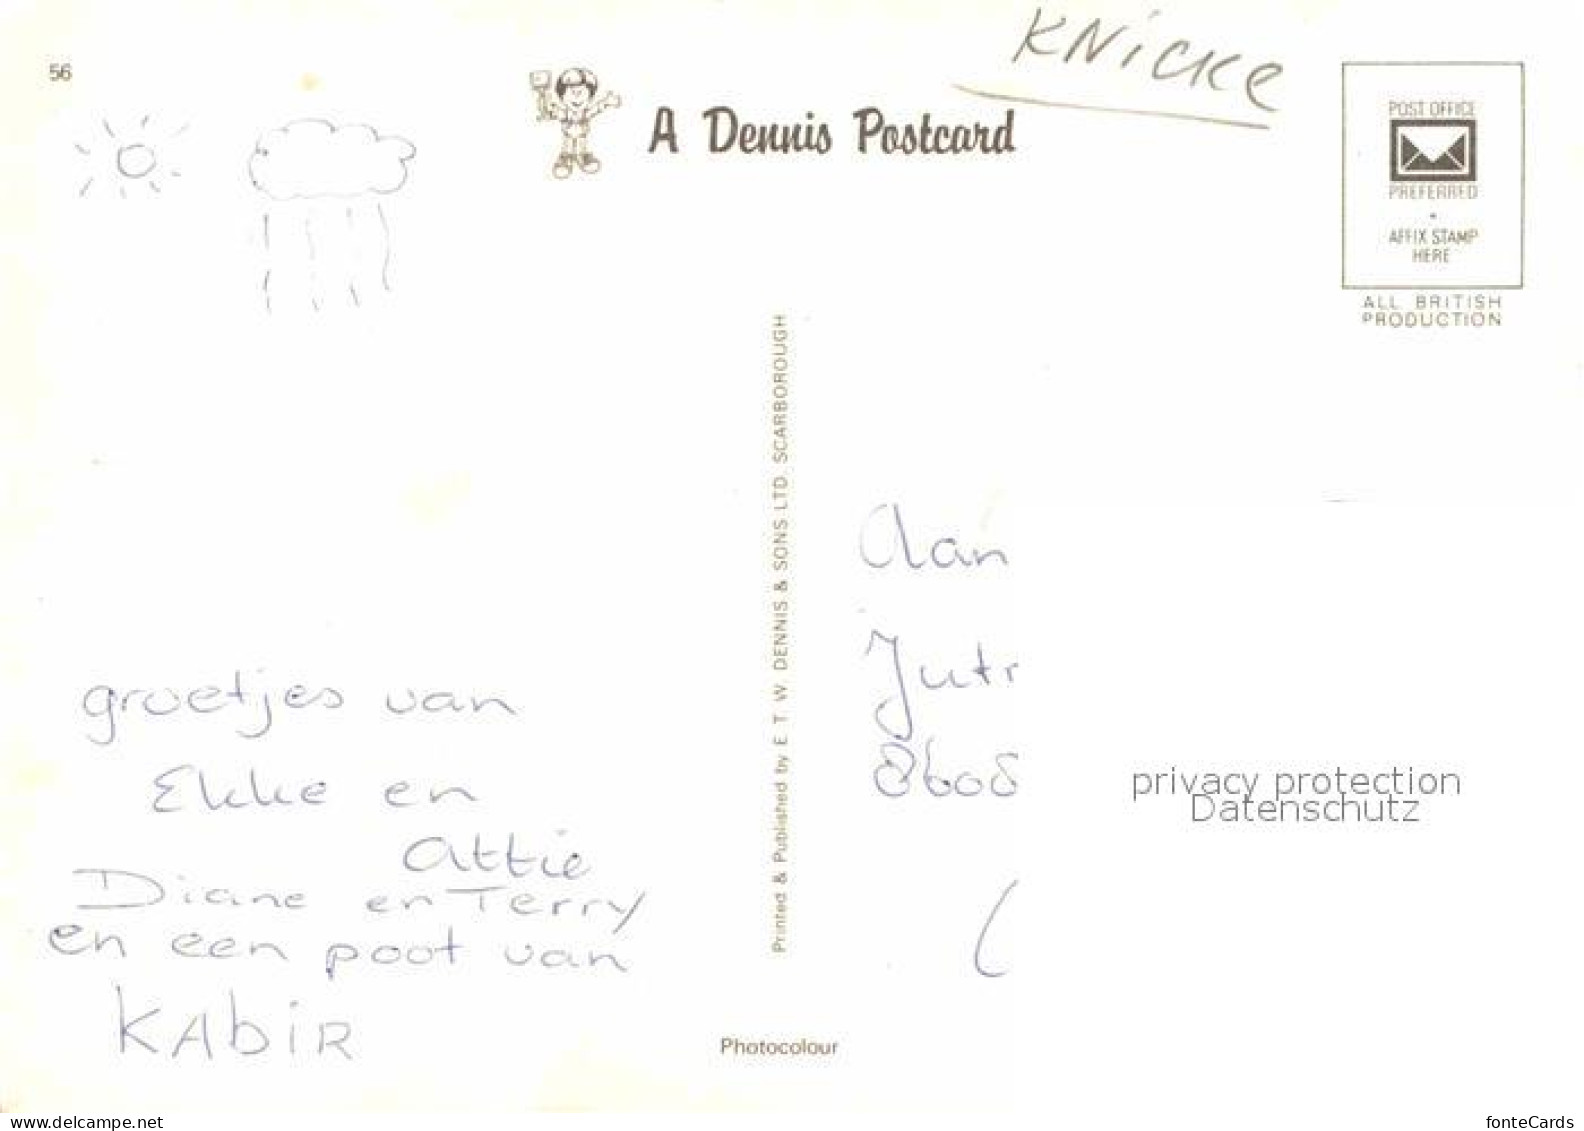 56
KNicke
A Dennis Postcard
POST OFFICE
PREFERRED
AFFIX STAMP
HERE
ALL BRITISH
PRODUCTION
Printed & Published by E. T. W. DENNIS & SONS LTD. SCARBOROUGH
groetjes van
Ekke en
Attie
Diane en Terry
en een poot van
KAbiR
Aan
Jutr
8608
privacy protection
Datenschutz
Photocolour
www.delcampe.net
fonteCards